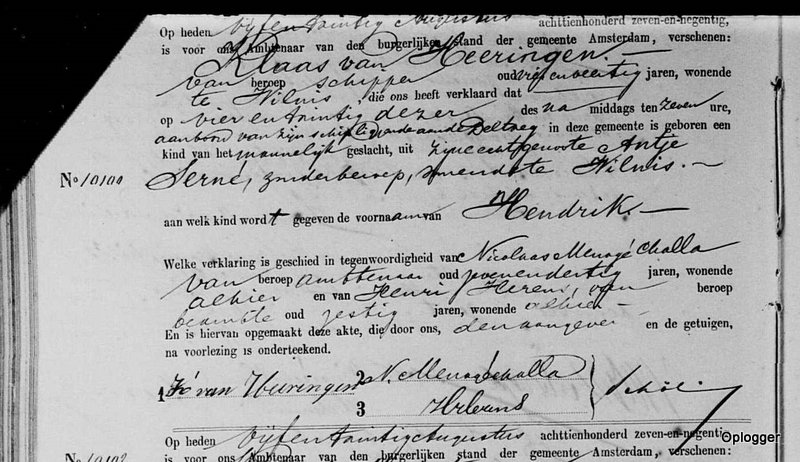 Op heden vijfentwintig Augustus achttienhonderd zeven-en-negentig,
is voor ons Ambtenaar van den burgerlijken stand der gemeente Amsterdam, verschenen:
Klaas van Heeringen. —
van beroep schipper oud vijfenveertig jaren, wonende
te Wilnis, die ons heeft verklaard dat
op vier en twintig dezer des na middags ten zeven ure,
aanboord van zijn schip liggende aan de in deze gemeente is geboren een
kind van het mannelijk geslacht, uit zijne echtgenoote Antje
No 10100 Serné, zonder beroep, wonende te Wilnis. —
aan welk kind wordt gegeven de voornaam van Hendrik. —
Welke verklaring is geschied in tegenwoordigheid van Nicolaas Menagé Challa
van beroep ambtenaar oud jaren, wonende
alhier en van Henri van beroep
beambte oud zestig jaren, wonende alhier —
En is hiervan opgemaakt deze akte, die door ons, den aangever en de getuigen,
na voorlezing is onderteekend.
1 K. van Heeringen 2 N. Menagé Challa
3
Op heden vijfentwintig Augustus achttienhonderd zeven-en-negentig
No 10102 is voor ons Ambtenaar van den burgerlijken stand der gemeente Amsterdam, verschenen:
©plogger